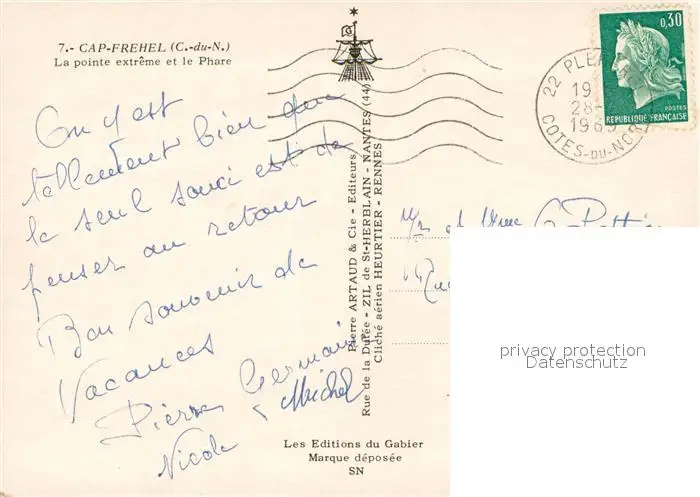 7.- CAP-FREHEL (C.-du-N.)
La pointe extrême et le Phare
On y est
tellement bien que
le seul souci est de
penser au retour
Bon souvenir de
Vacances
Pierre Germaine
Nicole Michel
Pierre ARTAUD & Cie - Editeurs
Rue de la Dutée - ZIL de St-HERBLAIN - NANTES (44)
Cliché aérien HEURTIER - RENNES
Les Editions du Gabier
Marque déposée
SN
0,30
POSTES
REPUBLIQUE FRANÇAISE
22 PLE
19
28-
1969
COTES-DU-NORD
Mr et Mme G.
privacy protection
Datenschutz